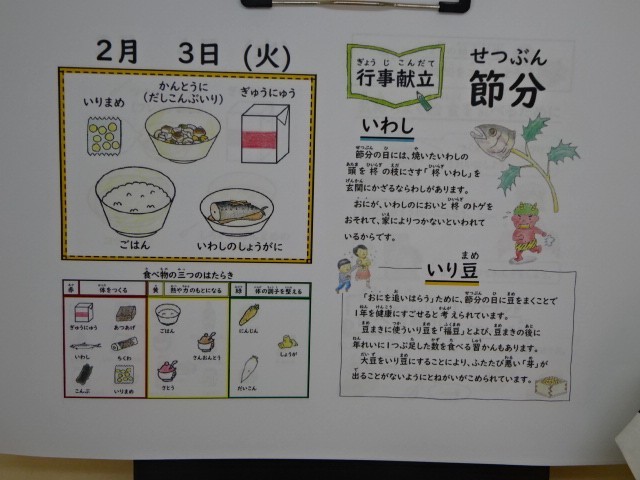 2月 3日 (火)
いりまめ
かんとうに
(だしこんぶいり)
ぎゅうにゅう
ごはん
いわしのしょうがに
食べ物の三つのはたらき
赤 体をつくる
黄 熱や力のもとになる
緑 体の調子を整える
ぎゅうにゅう
あつあげ
いわし
ちくわ
こんぶ
いりまめ
ごはん
さんおんとう
さとう
にんじん
しょうが
だいこん
行事献立
せつぶん
節分
いわし
節分の日には、焼いたいわしの
頭を柊の枝にさす「柊いわし」を
玄関にかざるならわしがあります。
おにが、いわしのにおいと柊のトゲを
おそれて、家によりつかないといわれて
いるからです。
いり豆
「おにを追いはらう」ために、節分の日に豆をまくことで
1年を健康にすごせると考えられています。
豆まきに使ういり豆を「福豆」とよび、豆まきの後に
年れいに1つ足した数を食べる習かんもあります。
大豆をいり豆にすることにより、ふたたび悪い「芽」が
出ることがないようにとねがいがこめられています。